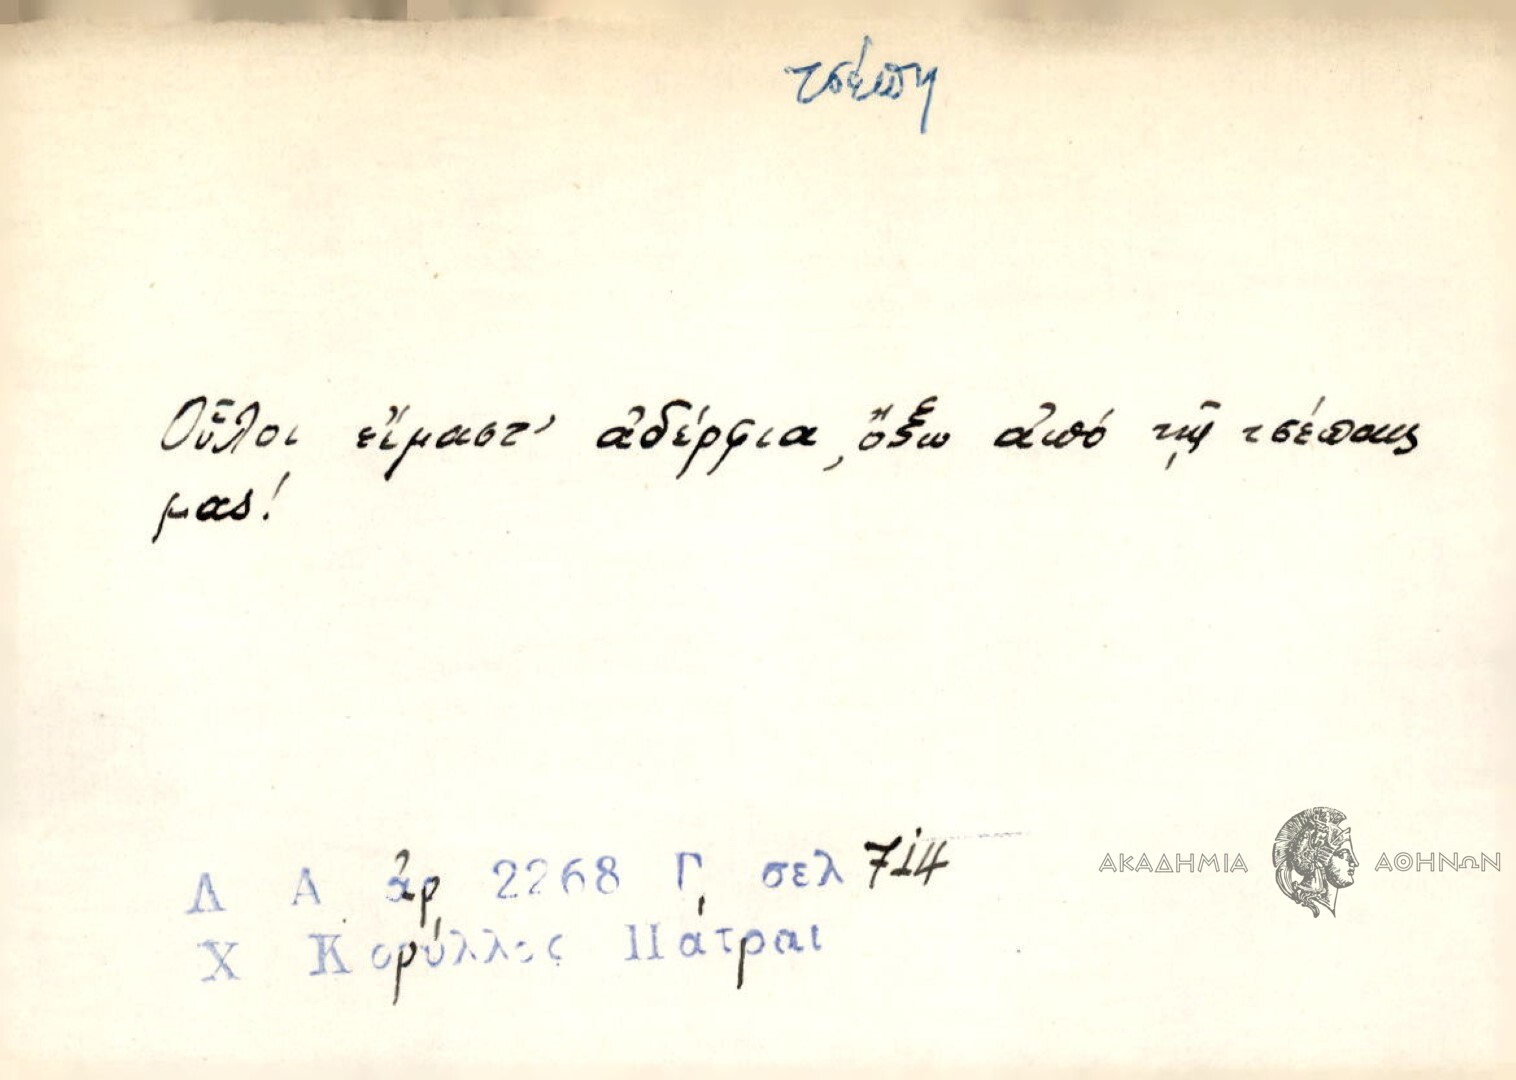 τσέπη
Οὗλοι εἴμαστ' ἀδέρφια, ὄξω ἀπό τὶς τσέπαις
μας!
Λ Α ἀρ 2268 Γ, σελ 714
Χ Κορύλλος Πάτραι
ΑΚΑΔΗΜΙΑ ΑΘΗΝΩΝ